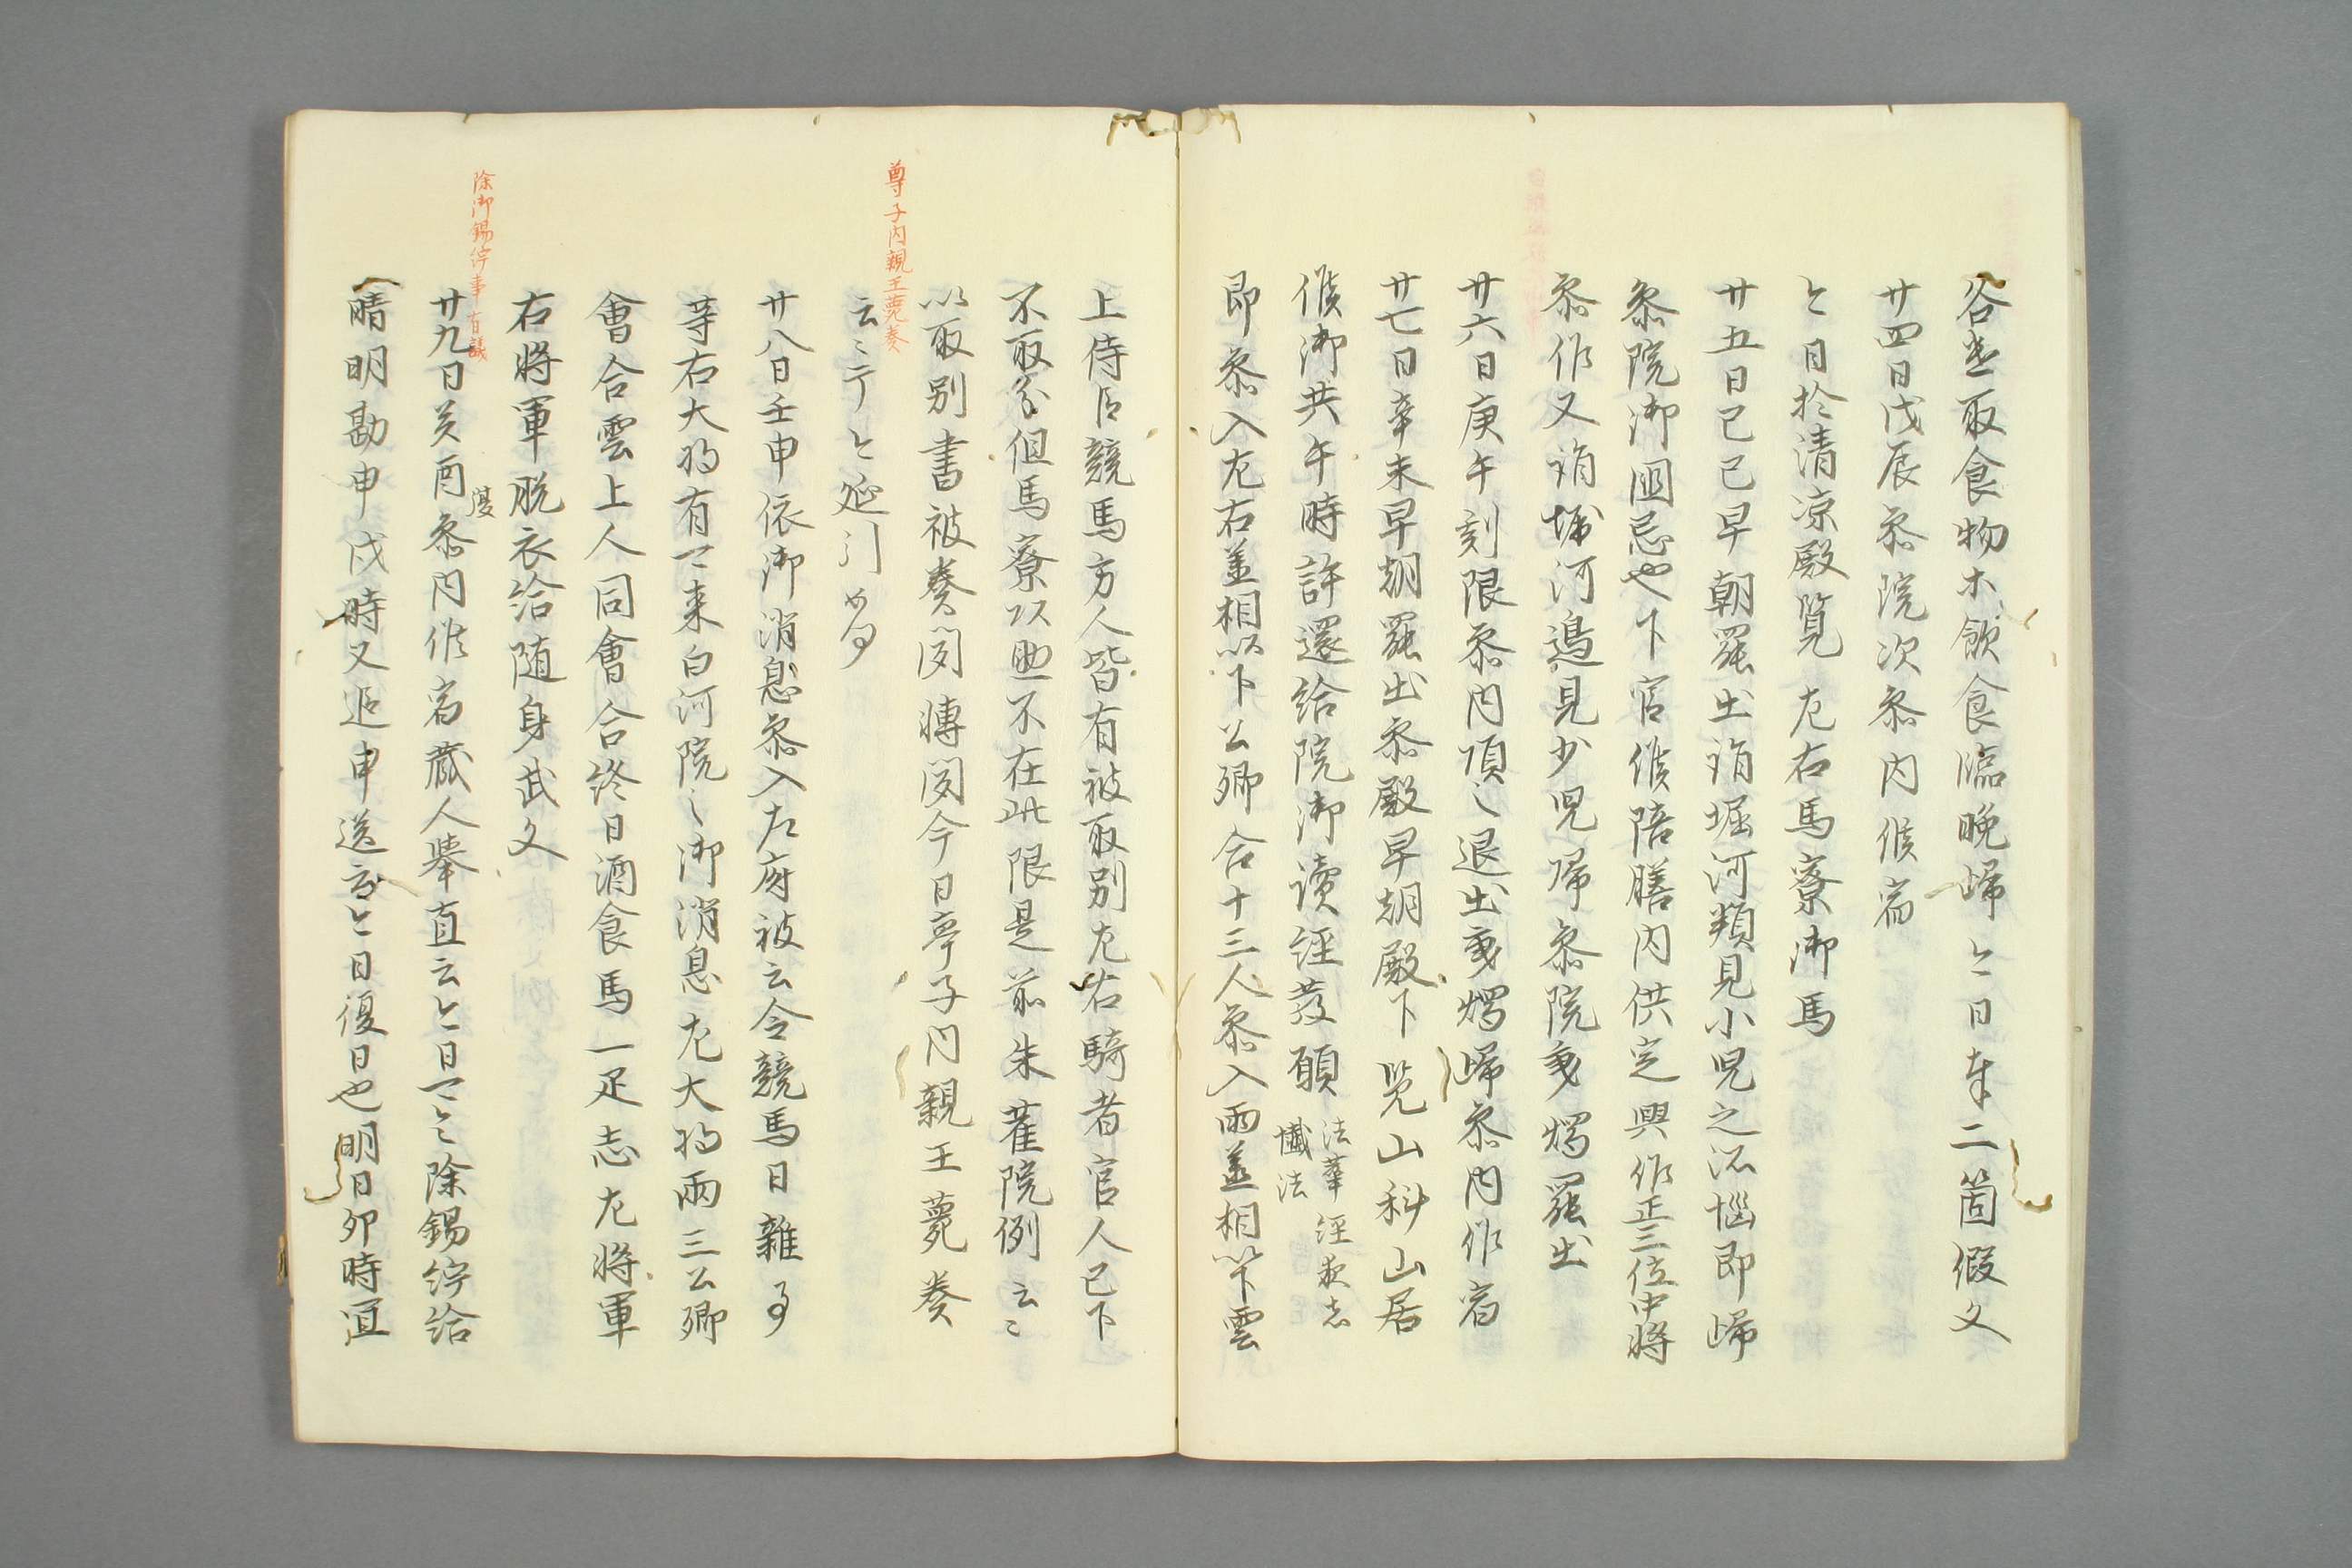 谷送取食物木飲食臨晩帰今日奉二箇假文
廿四日戊辰参院次参内候宿
今日於清凉殿覧左右馬寮御馬
廿五日己巳早朝罷出詣堀河頬見小児之所悩即帰
参院御国忌也下官候陪膳内供定興作正三位中将
参作又詣堀河邉見少児帰参院乗燭罷出
廿六日庚午刻限参内頃之退出乗燭帰参内作宿
廿七日辛未早朝罷出参殿早朝殿下覧山科山居
候御共午時許還給院御讀経發願 法華経弥志
懺法
即参入左右並相以下公卿合十三人参入両並相以下雲
上侍臣競馬方人皆有被取別左右騎者官人已下
不取分但馬寮以助不在此限是前朱雀院例云〻
以取別書被奏聞轉閲今日尊子内親王薨奏
尊子内親王薨奏
云〻而今延引如何
廿八日壬申依御消息参入左府被云令競馬日雜事
等右大将有一来白河院之御消息左大将両三公卿
會合雲上人同會合終日酒食馬一疋志左将軍
右将軍脱衣給随身武文
廿九日癸酉参内候宿蔵人挙直云今日可令除錫紵給
復
除御錫紵事有議
晴明勘申戊時又追申送云今日復日也明日卯時宜